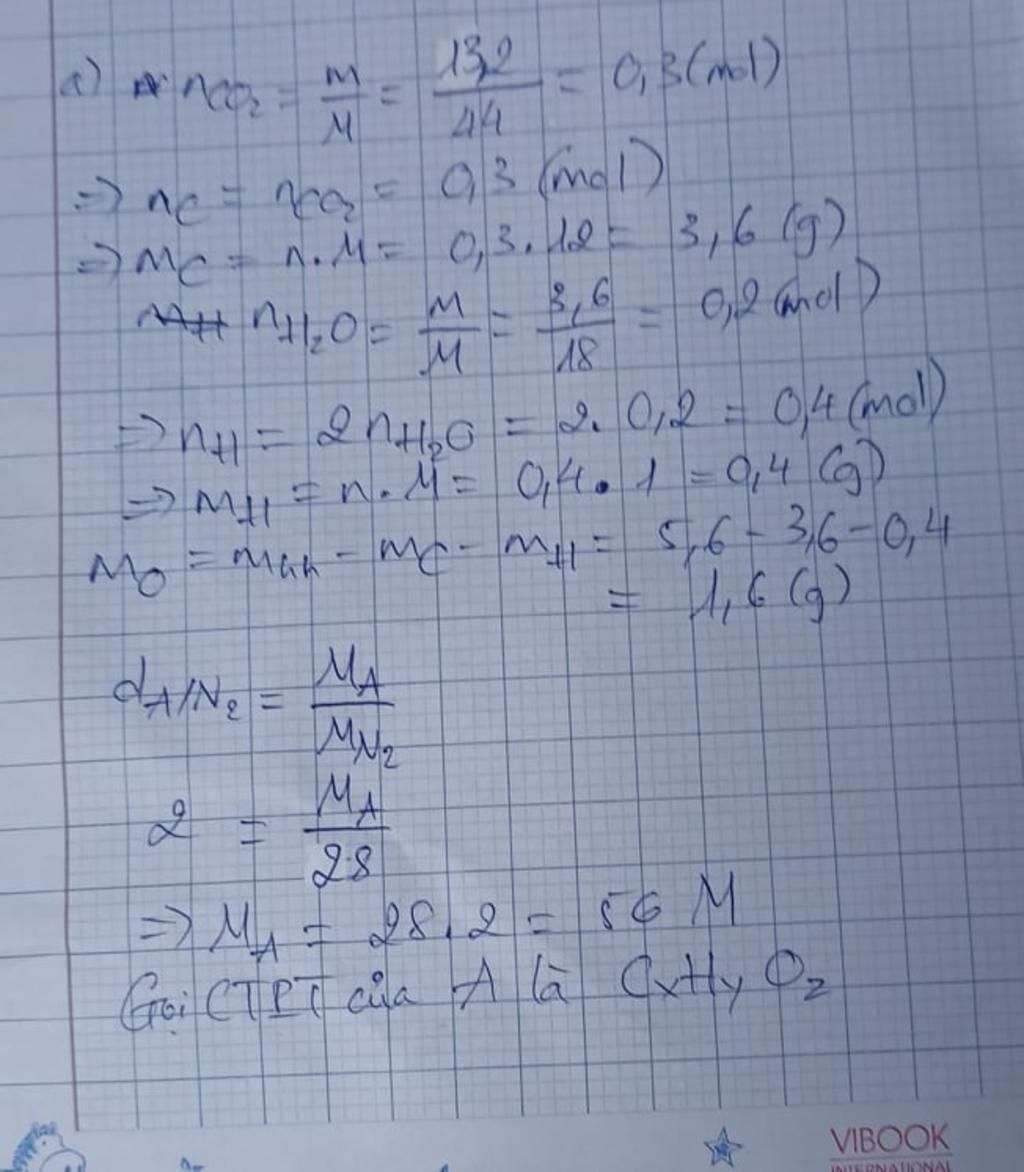 a) nCO₂ = m/M = 13,2/44 = 0,3 (mol)
=> nC = nCO₂ = 0,3 (mol)
=> mC = n.M = 0,3.12 = 3,6 (g)
nH₂O = m/M = 3,6/18 = 0,2 (mol)
=> nH = 2nH₂O = 2.0,2 = 0,4 (mol)
=> mH = n.M = 0,4.1 = 0,4 (g)
mO = - mC - mH = 5,6 - 3,6 - 0,4
= 1,6 (g)
dA/N₂ = MA/MN₂
2 = MA/28
=> MA = 28.2 = 56 M
Gọi CTPT của A là CxHyOz
VIBOOK
INTERNATIONAL